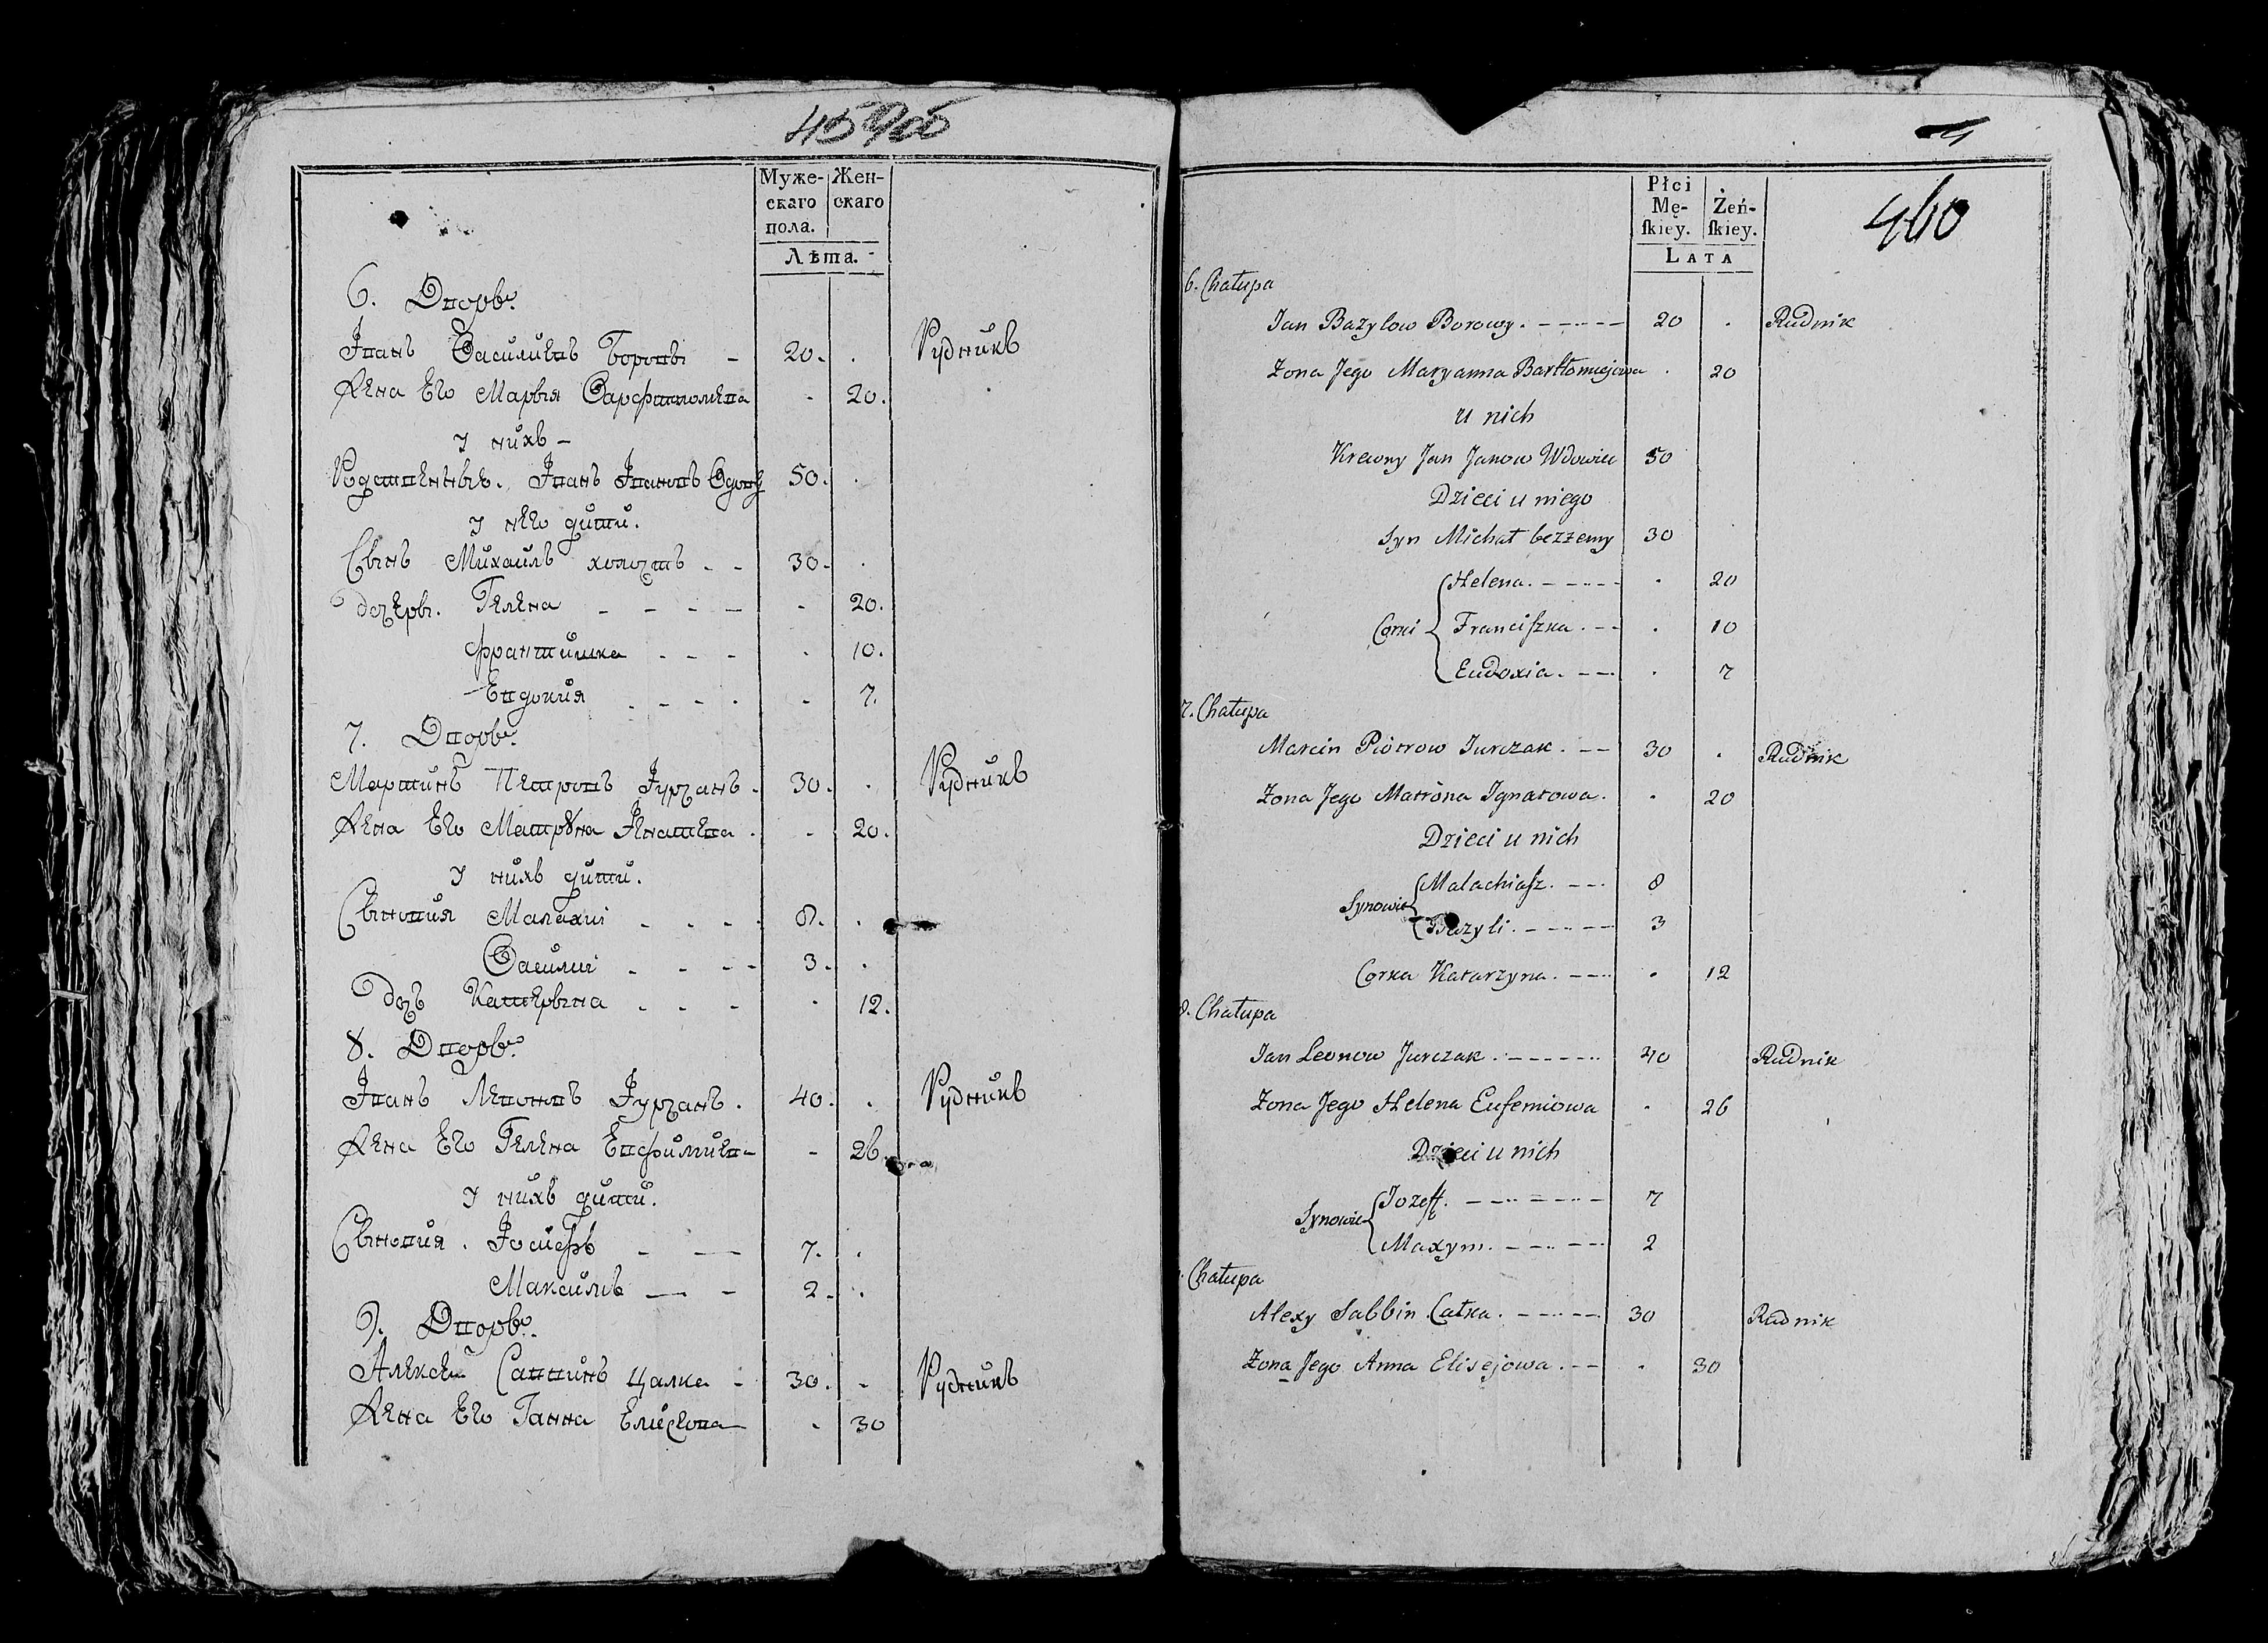 Муже-
скаго
пола.
Жен-
скаго
Лѣта.
6. Дворъ.
Іванъ Василіевъ Боровы - 20. .
Рудникъ
Жена Его Марыя Варфтоломева - 20.
У нихъ -
Іванъ Івановъ 50. .
У него дити.
Сынъ Михаилъ холостъ - - 30. .
дочеры. Гелена - - - - - 20.
Франтишка - - - - 10.
Евдокия - - - - - 7.
7. Дворъ.
Мартинъ Петровъ Јурчакъ. 30. .
Рудникъ
Жена Его Матруна Игнатева . - 20.
У нихъ дити.
Сыновия Малахиі - - - - 8. .
Василиі - - - - 3. .
Дочъ Катерына - - - - 12.
8. Дворъ.
Іванъ Левоновъ Јурчакъ. 40. .
Рудникъ
Жена Его Гелена Евфимиева - 26.
У нихъ дити.
Сыновия . Іосифъ - - 7. .
Максимъ - - 2. .
9. Дворъ.
Алексей Саввинъ Цалка - 30. -
Рудникъ
Жена Его Ганна Елисеова - 30
460
Płci
Mę-
ſkiey.
Żeń-
ſkiey.
LATA
6. Chałupa
Jan Bazylow Borowy. - - - - 20 . Rudnik
Zona Jego Maryanna Bartłomiejowa . 20
u nich
Krewny Jan Janow Wdowiec 50
Dzieci u niego
Syn Michał bezzenny 30
Helena. - - - - . 20
Corki Franciſzka. - - . 10
Eudoxia. - - . 7
7. Chałupa
Marcin Piotrow Jurczak. - - 30 . Rudnik
Zona Jego Matrona Ignatowa. . 20
Dzieci u nich
Malachiaſz. - - . 8
Synowie
Bazyli. - - - - 3
Corka Katarzyna. - - - . 12
8. Chałupa
Jan Leonow Jurczak. - - - - 40 Rudnik
Zona Jego Helena Eufemiowa . 26
Dzieci u nich
Jozeff. - - - - - 7
Synowie
Maxym. - - - - 2
Chałupa
Alexy Sabbin Całka. - - - - 30 Rudnik
Zona Jego Anna Elisejowa. - - . 30